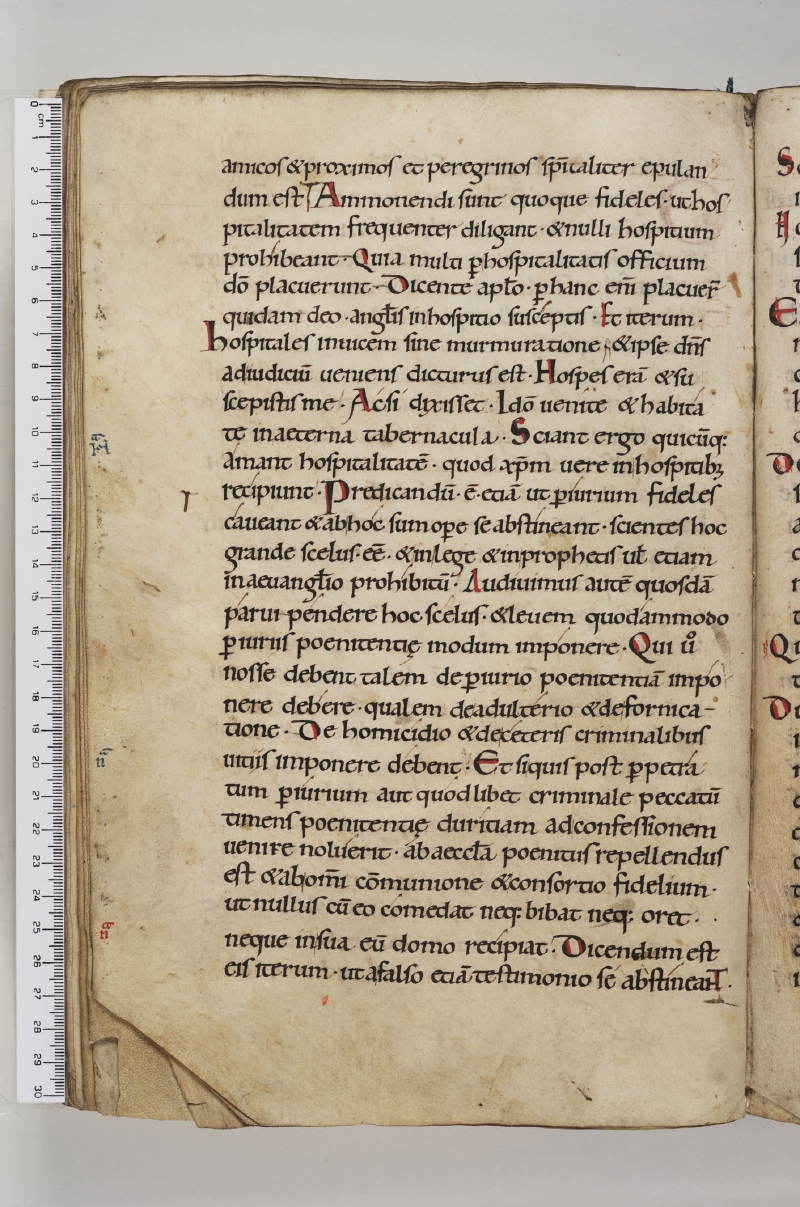 amicos &proximos et peregrinos sp̄italiter epulan
dum est Ammonendi sunt quoque fideles· ut hos
pitalitatem frequenter diligant· & nulli hospitium
prohibeant· Quia multi ꝑ hospitalitatis officium
dō placuerunt· Dicente apl̄o· ꝑ hanc eni̅ placuer̄
quidam deo· angl̄is in hospitio susceptis· Et iterum·
hospitales inuicem sine murmuratione· & ipse dn̄s
ad iudiciū ueniens dicturus est· Hospes erā & su
scepistis me· Acsi dixisset· Idō uenite & habita
te in aeterna tabernacula· Sciant ergo quicūq:
amant hospitalitatē· quod xp̄m uere in hospitibꝫ
recipiunt· Predicandū· ē· etiā ut ꝑiurium fideles
caueant & ab hoc sum ope se abstineant· scientes hoc
grande scelus· eē· & in lege & in prophetis ul̄ etiam
in aeuangl̄io prohibitū· Audiuimus autē quosdā
parui pendere hoc scelus· & leuem quodammodo
ꝑiuriis poenitentię modum imponere· Qui ů
nosse debent talem de ꝑiurio poenitentiā impo
nere debere· qualem de adulterio & de fornica-
tione· De homicidio & de ceteris criminalibus
uitiis imponere debent· Et si quis post ꝑpetra
tum ꝑiurium aut quod libet criminale peccatū
timens poenitentię duritiam ad confessionem
uenire noluerit· ab aeccl̄a poenitus repellendus
est & ab omi̅ cōmunione & consortio fidelium·
ut nullus cū eo comedat neq: bibat neq: oret·
neque in sua eū domo recipiat· Dicendum est
eis iterum· ut a falso etiā testimonio se abstineant·